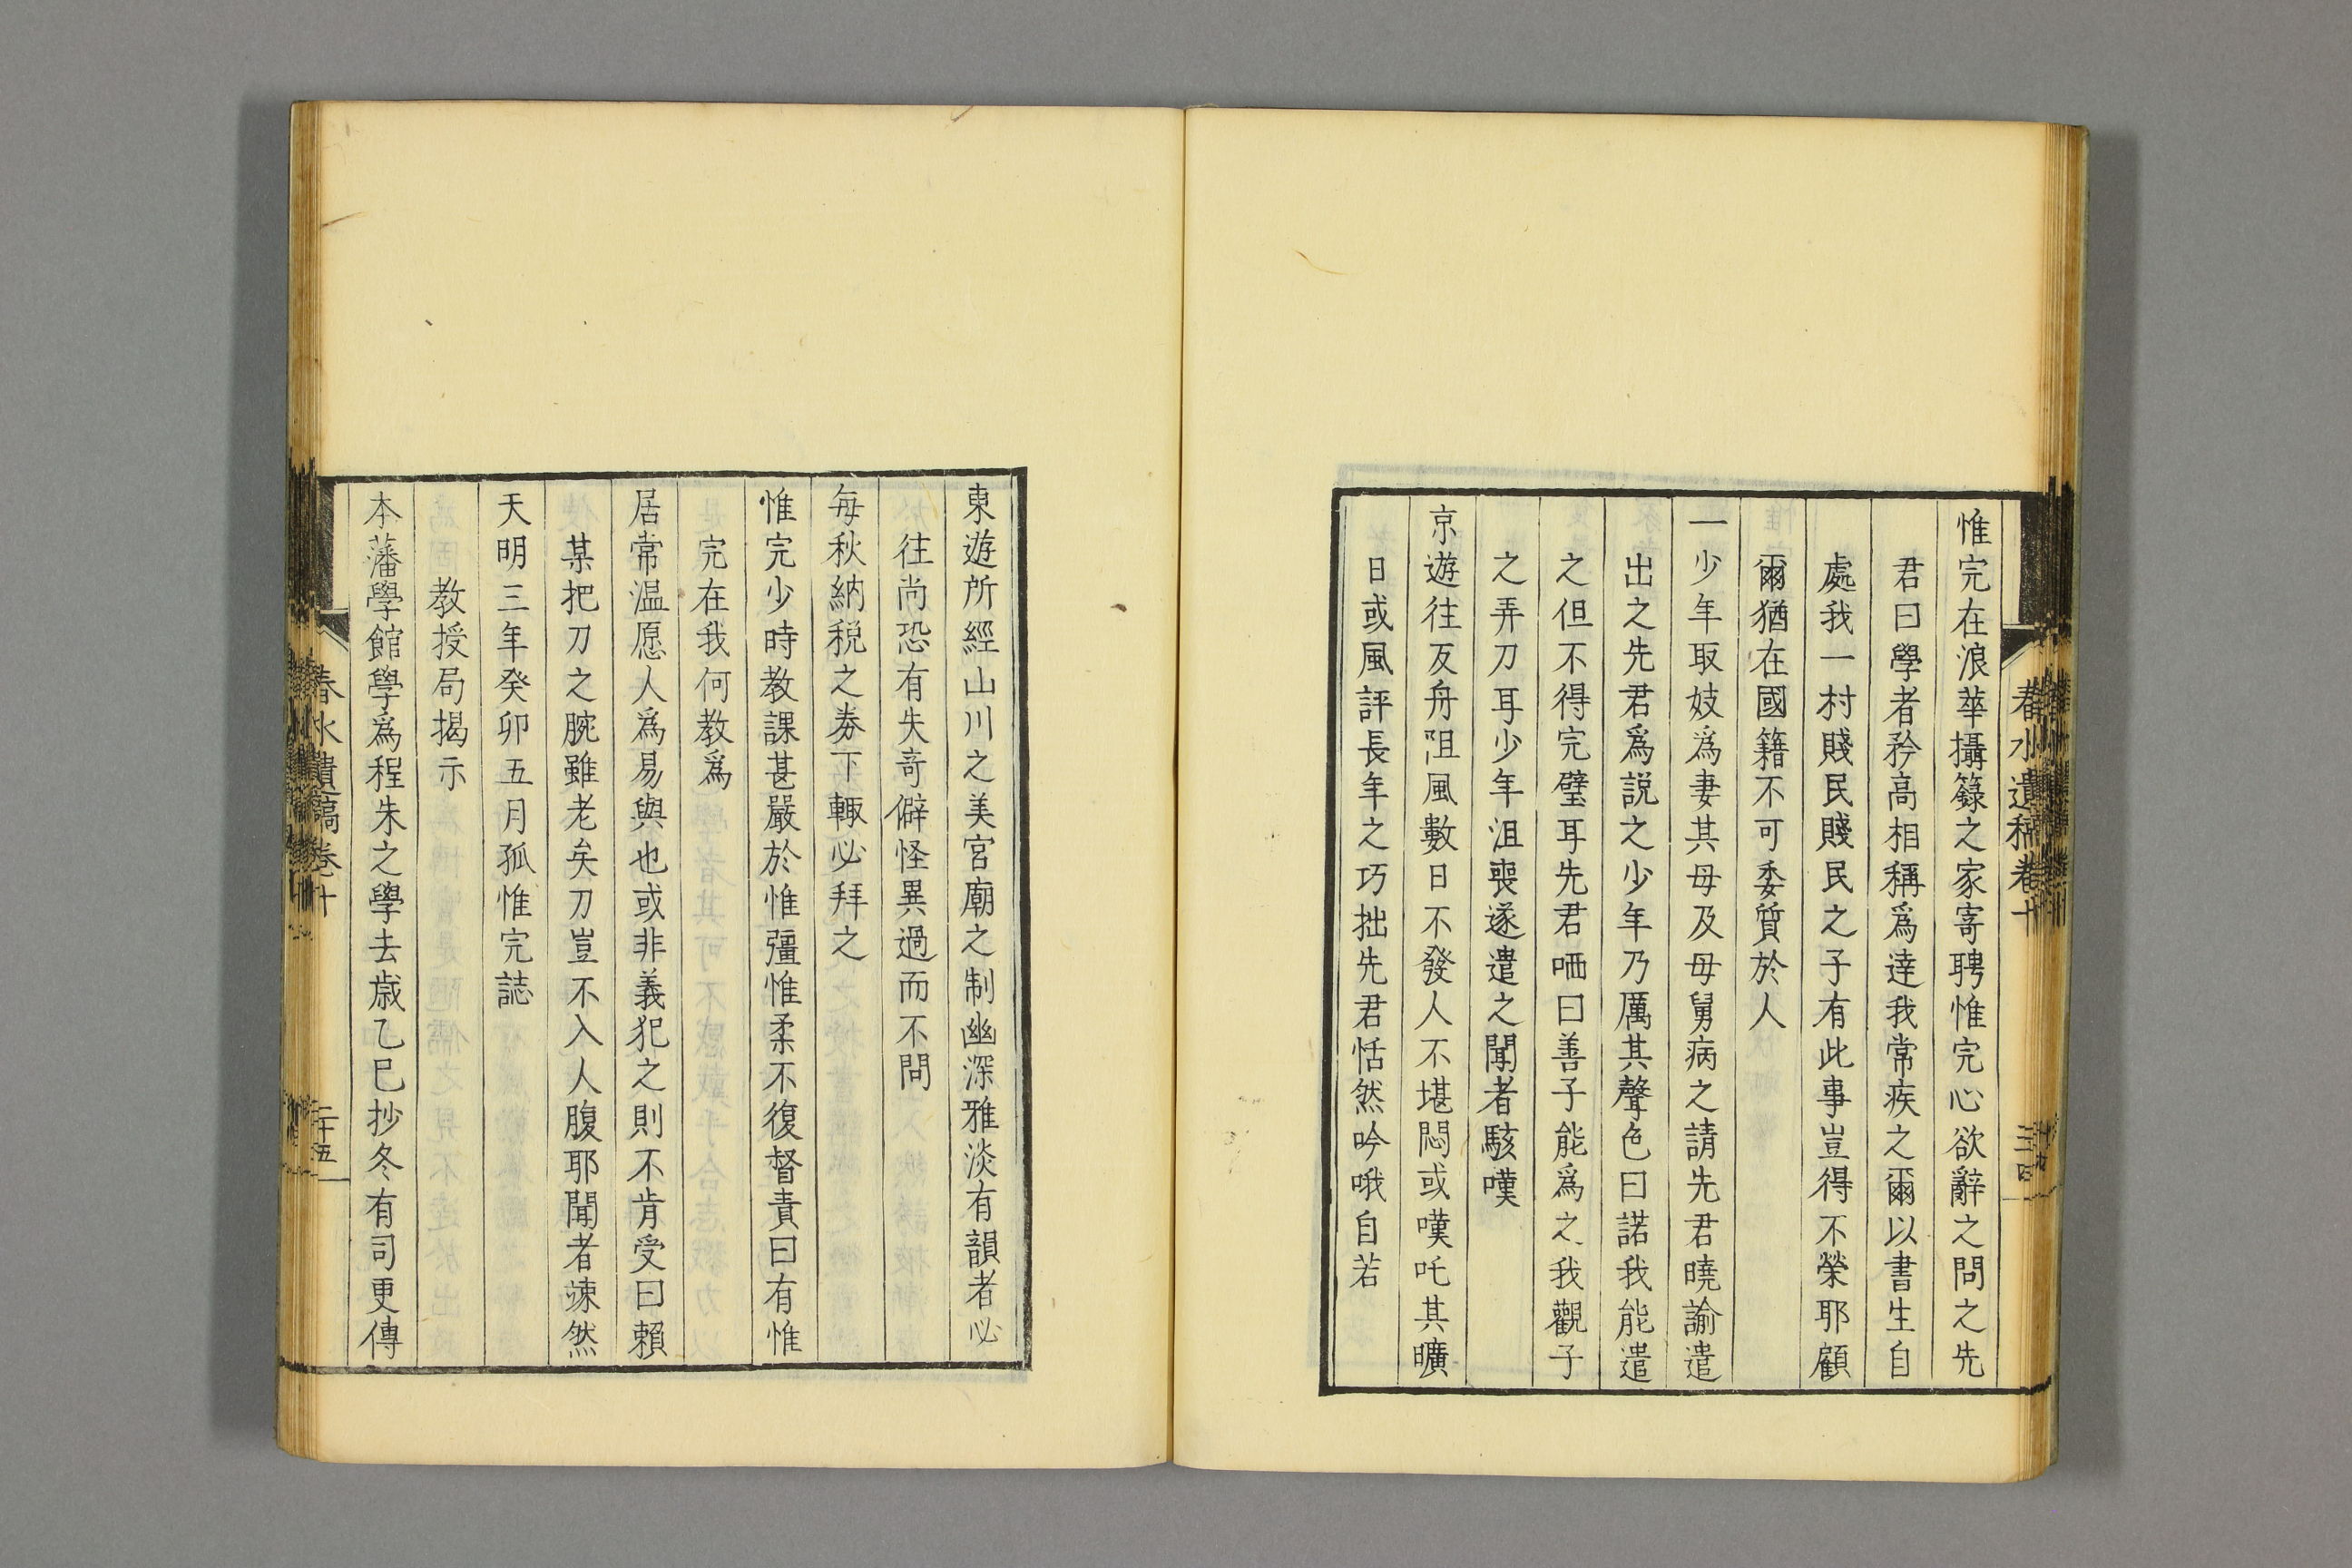 春水遺稿卷十
惟完在浪華攝籙之家寄聘惟完心欲辭之問之先
君曰學者矜高相稱爲達我常疾之爾以書生自
處我一村賤民賤民之子有此事豈得不榮耶顧
爾猶在國籍不可委質於人
一少年取妓爲妻其母及母舅病之請先君曉諭遣
出之先君爲説之少年乃厲其聲色曰諾我能遣
之但不得完璧耳先君哂曰善子能爲之我觀子
之弄刀耳少年沮喪遂遣之聞者駭嘆
京遊往反舟阻風數日不發人不堪悶或嘆吒其曠
日或風評長年之巧拙先君恬然吟哦自若
東遊所經山川之美宮廟之制幽深雅淡有韻者必
往尚恐有失奇僻怪異過而不問
每秋納税之券下輙必拜之
惟完少時教課甚嚴於惟彊惟柔不復督責曰有惟
完在我何教爲
居常温愿人爲易與也或非義犯之則不肯受曰賴
某把刀之腕雖老矣刀豈不入人腹耶聞者竦然
天明三年癸卯五月孤惟完誌
教授局揭示
本藩學館學爲程朱之學去歳乙巳抄冬有司更傳
春水遺稿卷十
二十五